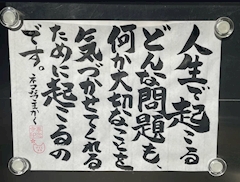 人生で起こる
どんな問題も、
何か大切なことを
気づかせてくれる
ために起こるの
です。